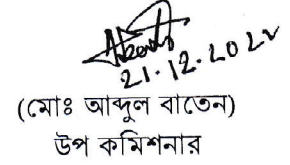 21.12.202
(মোঃ আব্দুল বাতেন)
উপ কমিশনার